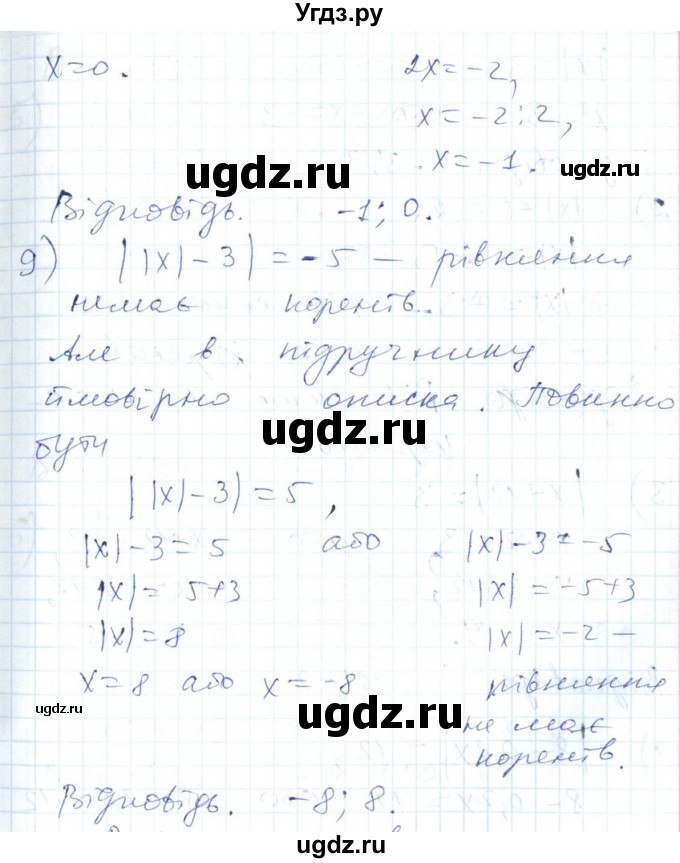 Угдз.ру
x=0.
2x=-2,
x=-2:2,
ugdz.ru
x=-1.
Відповідь. -1; 0.
9) ||x|-3|=-5 — рівняння
немає коренів.
Але в підручнику
ймовірно описка. Повинно
ugdz.ru
бути
||x|-3)=5,
|x|-3=5 або |x|-3=-5
|x|=5+3 |x|=-5+3
|x|=8 |x|=-2 —
x=8 або x=-8 рівняння
ugdz.ru
ugdz.ru
ugdz.ru
не має
коренів.
Відповідь. -8; 8.
ugdz.ru